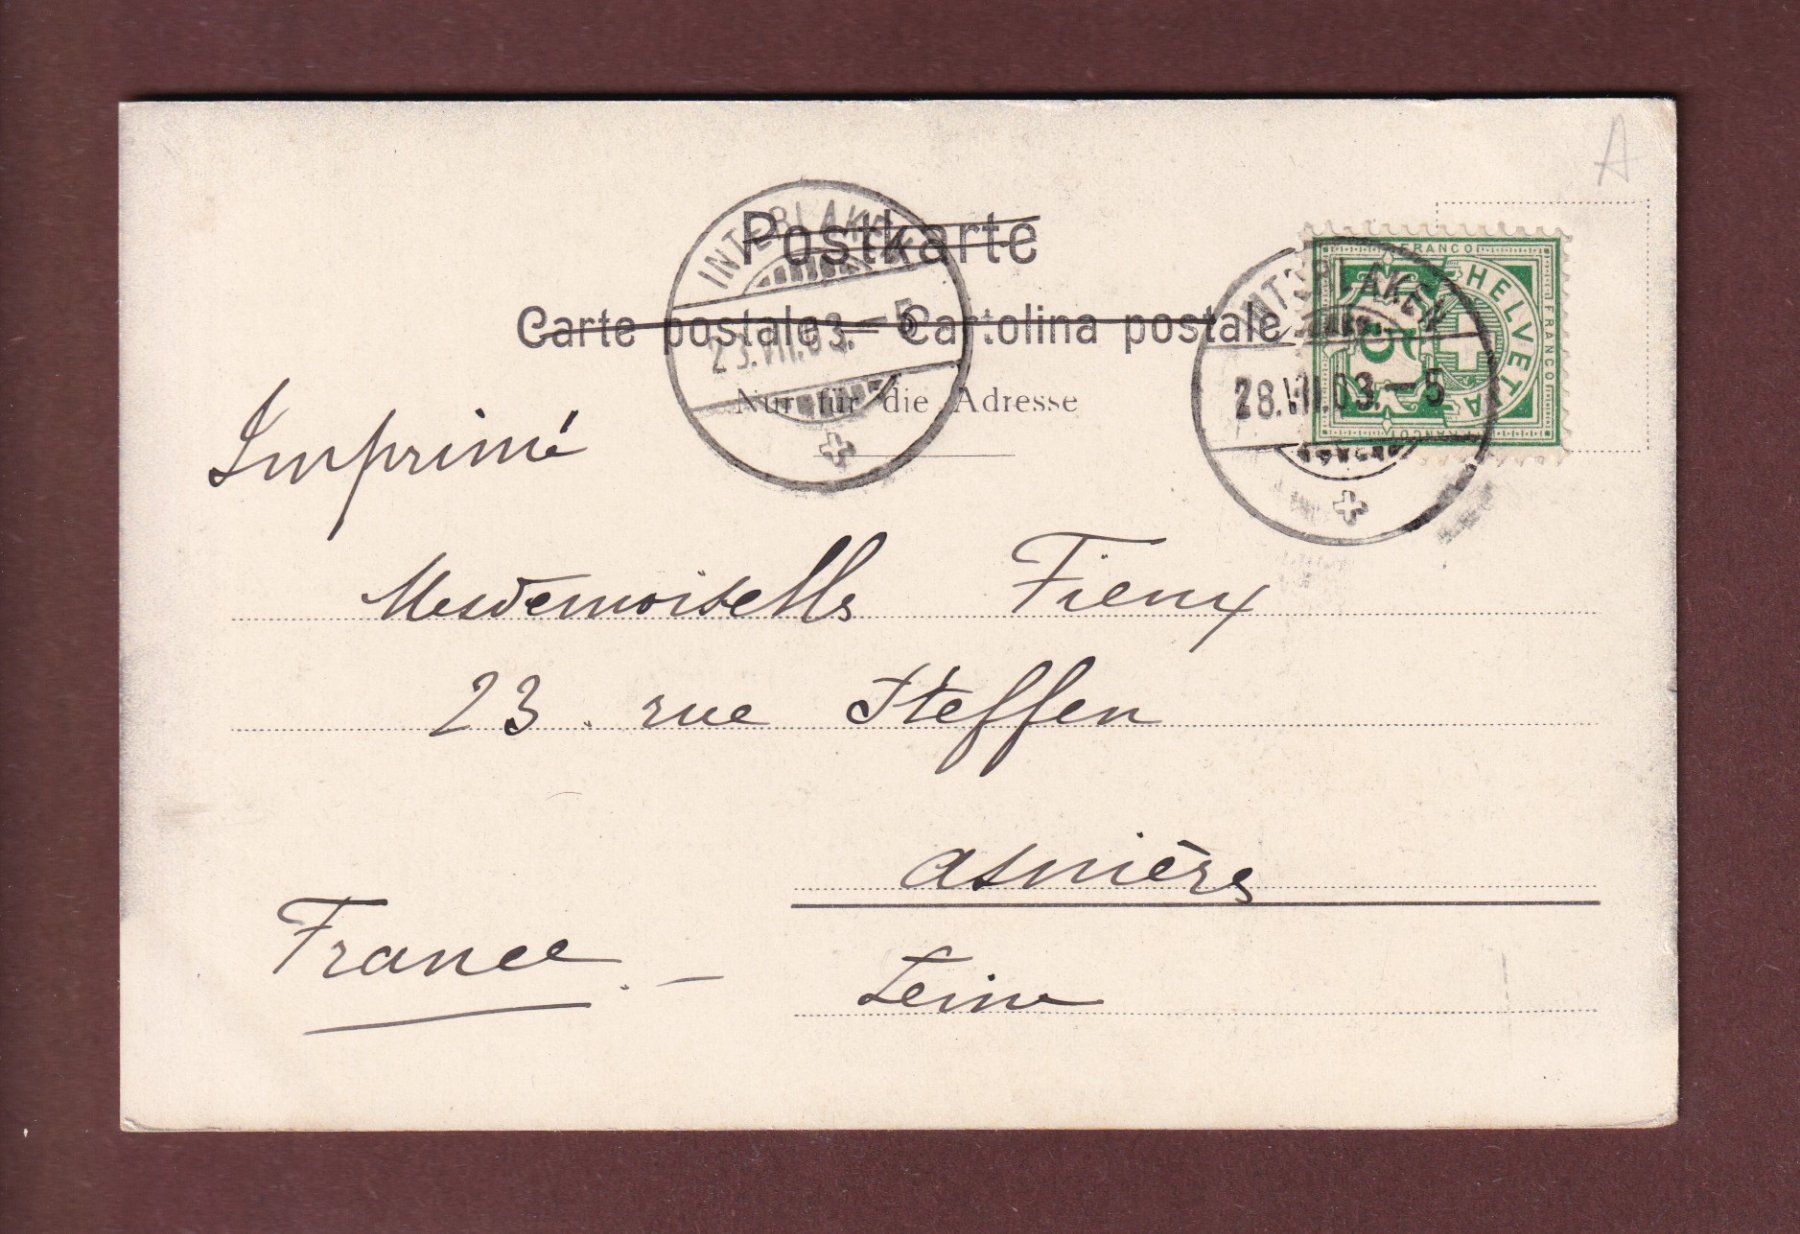 A
Postkarte
Carte postale — Cartolina postale
Nur für die Adresse
INTERLAKEN
23.VII.03.—5
FRANCO
HELVETIA
FRANCO
FRANCO
5
INTERLAKEN
28.VII.03.—5
Imprimé
Mesdemoiselles Fieux
23. rue Steffen
Asnières
France.—
Seine